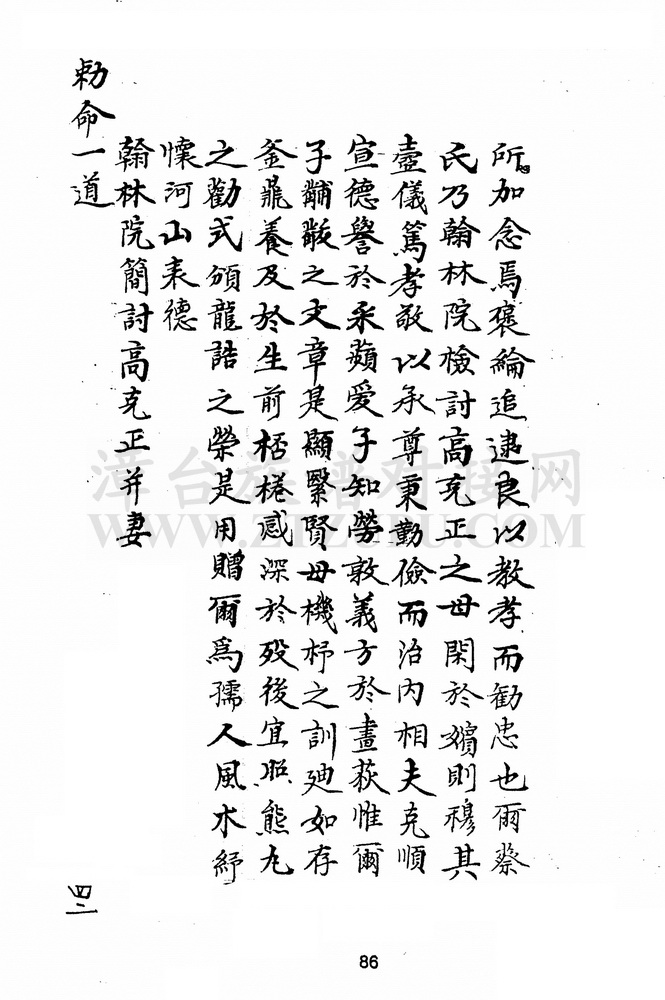 所加念焉褒綸追逮良以教孝而勸忠也爾蔡
氏乃翰林院檢討高克正之母閑於嬪則穆其
壼儀篤孝敬以承尊秉勤儉而治內相夫克順
宣德譽於采蘋愛子知勞敦義方於畫荻惟爾
子黼黻之文章是顯繄賢母機杼之訓廸如存
釜鼎養及於生前桮棬感深於歿後宜照熊丸
之勸式頒龍誥之榮是用贈爾爲孺人風木紓
懷河山表德
翰林院簡討高克正并妻
勅命一道
四二
86
漳台族譜对接网
WWW.ZTZUPU.COM